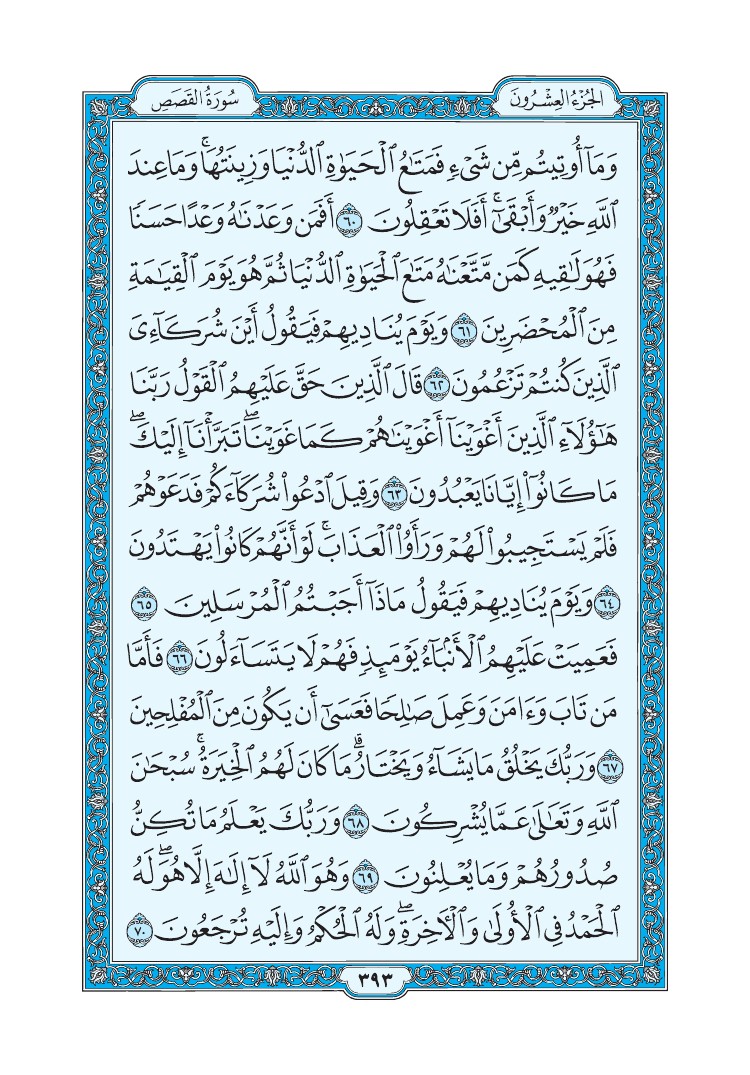 الجُزْءُ العِشْرُونَ
سُورَةُ القَصَصِ
وَمَآ أُوتِيتُم مِّن شَىْءٍ فَمَتَٰعُ ٱلْحَيَوٰةِ ٱلدُّنْيَا وَزِينَتُهَا ۚ وَمَا عِندَ
ٱللَّهِ خَيْرٌ وَأَبْقَىٰٓ ۚ أَفَلَا تَعْقِلُونَ ٦٠ أَفَمَن وَعَدْنَٰهُ وَعْدًا حَسَنًا
فَهُوَ لَٰقِيهِ كَمَن مَّتَّعْنَٰهُ مَتَٰعَ ٱلْحَيَوٰةِ ٱلدُّنْيَا ثُمَّ هُوَ يَوْمَ ٱلْقِيَٰمَةِ
مِنَ ٱلْمُحْضَرِينَ ٦١ وَيَوْمَ يُنَادِيهِمْ فَيَقُولُ أَيْنَ شُرَكَآءِىَ
ٱلَّذِينَ كُنتُمْ تَزْعُمُونَ ٦٢ قَالَ ٱلَّذِينَ حَقَّ عَلَيْهِمُ ٱلْقَوْلُ رَبَّنَا
هَٰٓؤُلَآءِ ٱلَّذِينَ أَغْوَيْنَآ أَغْوَيْنَٰهُمْ كَمَا غَوَيْنَا ۖ تَبَرَّأْنَآ إِلَيْكَ ۖ
مَا كَانُوٓا۟ إِيَّانَا يَعْبُدُونَ ٦٣ وَقِيلَ ٱدْعُوا۟ شُرَكَآءَكُمْ فَدَعَوْهُمْ
فَلَمْ يَسْتَجِيبُوا۟ لَهُمْ وَرَأَوُا۟ ٱلْعَذَابَ ۚ لَوْ أَنَّهُمْ كَانُوا۟ يَهْتَدُونَ
٦٤ وَيَوْمَ يُنَادِيهِمْ فَيَقُولُ مَاذَآ أَجَبْتُمُ ٱلْمُرْسَلِينَ ٦٥
فَعَمِيَتْ عَلَيْهِمُ ٱلْأَنۢبَآءُ يَوْمَئِذٍ فَهُمْ لَا يَتَسَآءَلُونَ ٦٦ فَأَمَّا
مَن تَابَ وَءَامَنَ وَعَمِلَ صَٰلِحًا فَعَسَىٰٓ أَن يَكُونَ مِنَ ٱلْمُفْلِحِينَ
٦٧ وَرَبُّكَ يَخْلُقُ مَا يَشَآءُ وَيَخْتَارُ ۗ مَا كَانَ لَهُمُ ٱلْخِيَرَةُ ۚ سُبْحَٰنَ
ٱللَّهِ وَتَعَٰلَىٰ عَمَّا يُشْرِكُونَ ٦٨ وَرَبُّكَ يَعْلَمُ مَا تُكِنُّ
صُدُورُهُمْ وَمَا يُعْلِنُونَ ٦٩ وَهُوَ ٱللَّهُ لَآ إِلَٰهَ إِلَّا هُوَ ۖ لَهُ
ٱلْحَمْدُ فِى ٱلْأُولَىٰ وَٱلْءَاخِرَةِ ۖ وَلَهُ ٱلْحُكْمُ وَإِلَيْهِ تُرْجَعُونَ ٧٠
٣٩٣